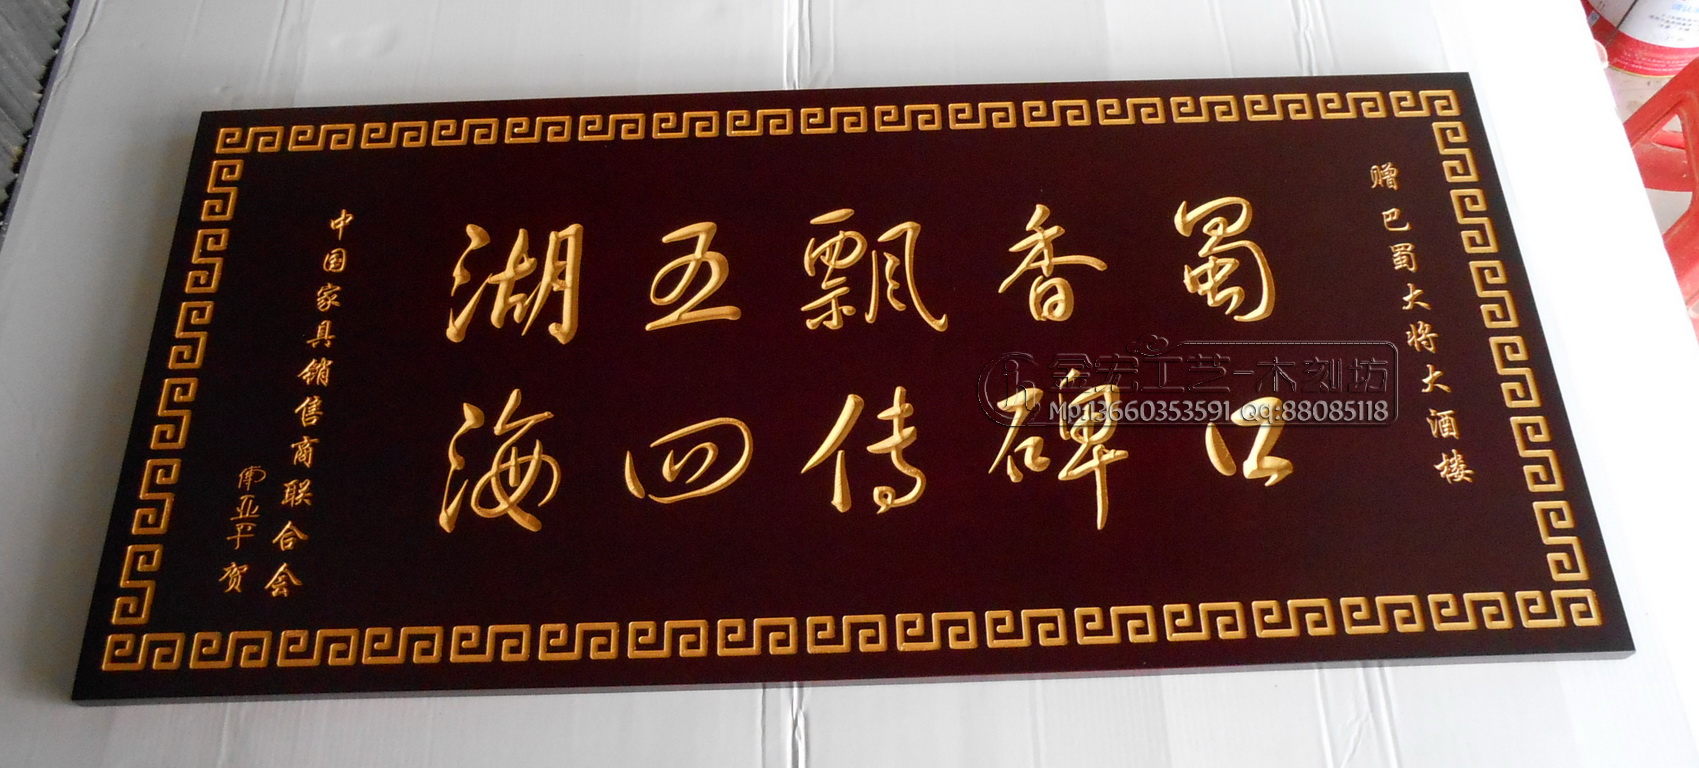 赠巴蜀大将大酒楼
蜀香飘五湖
口碑传四海
中国家具销售商联合会
亚平贺
金宏工艺-木刻坊
Mp:13660353591 QQ:88085118